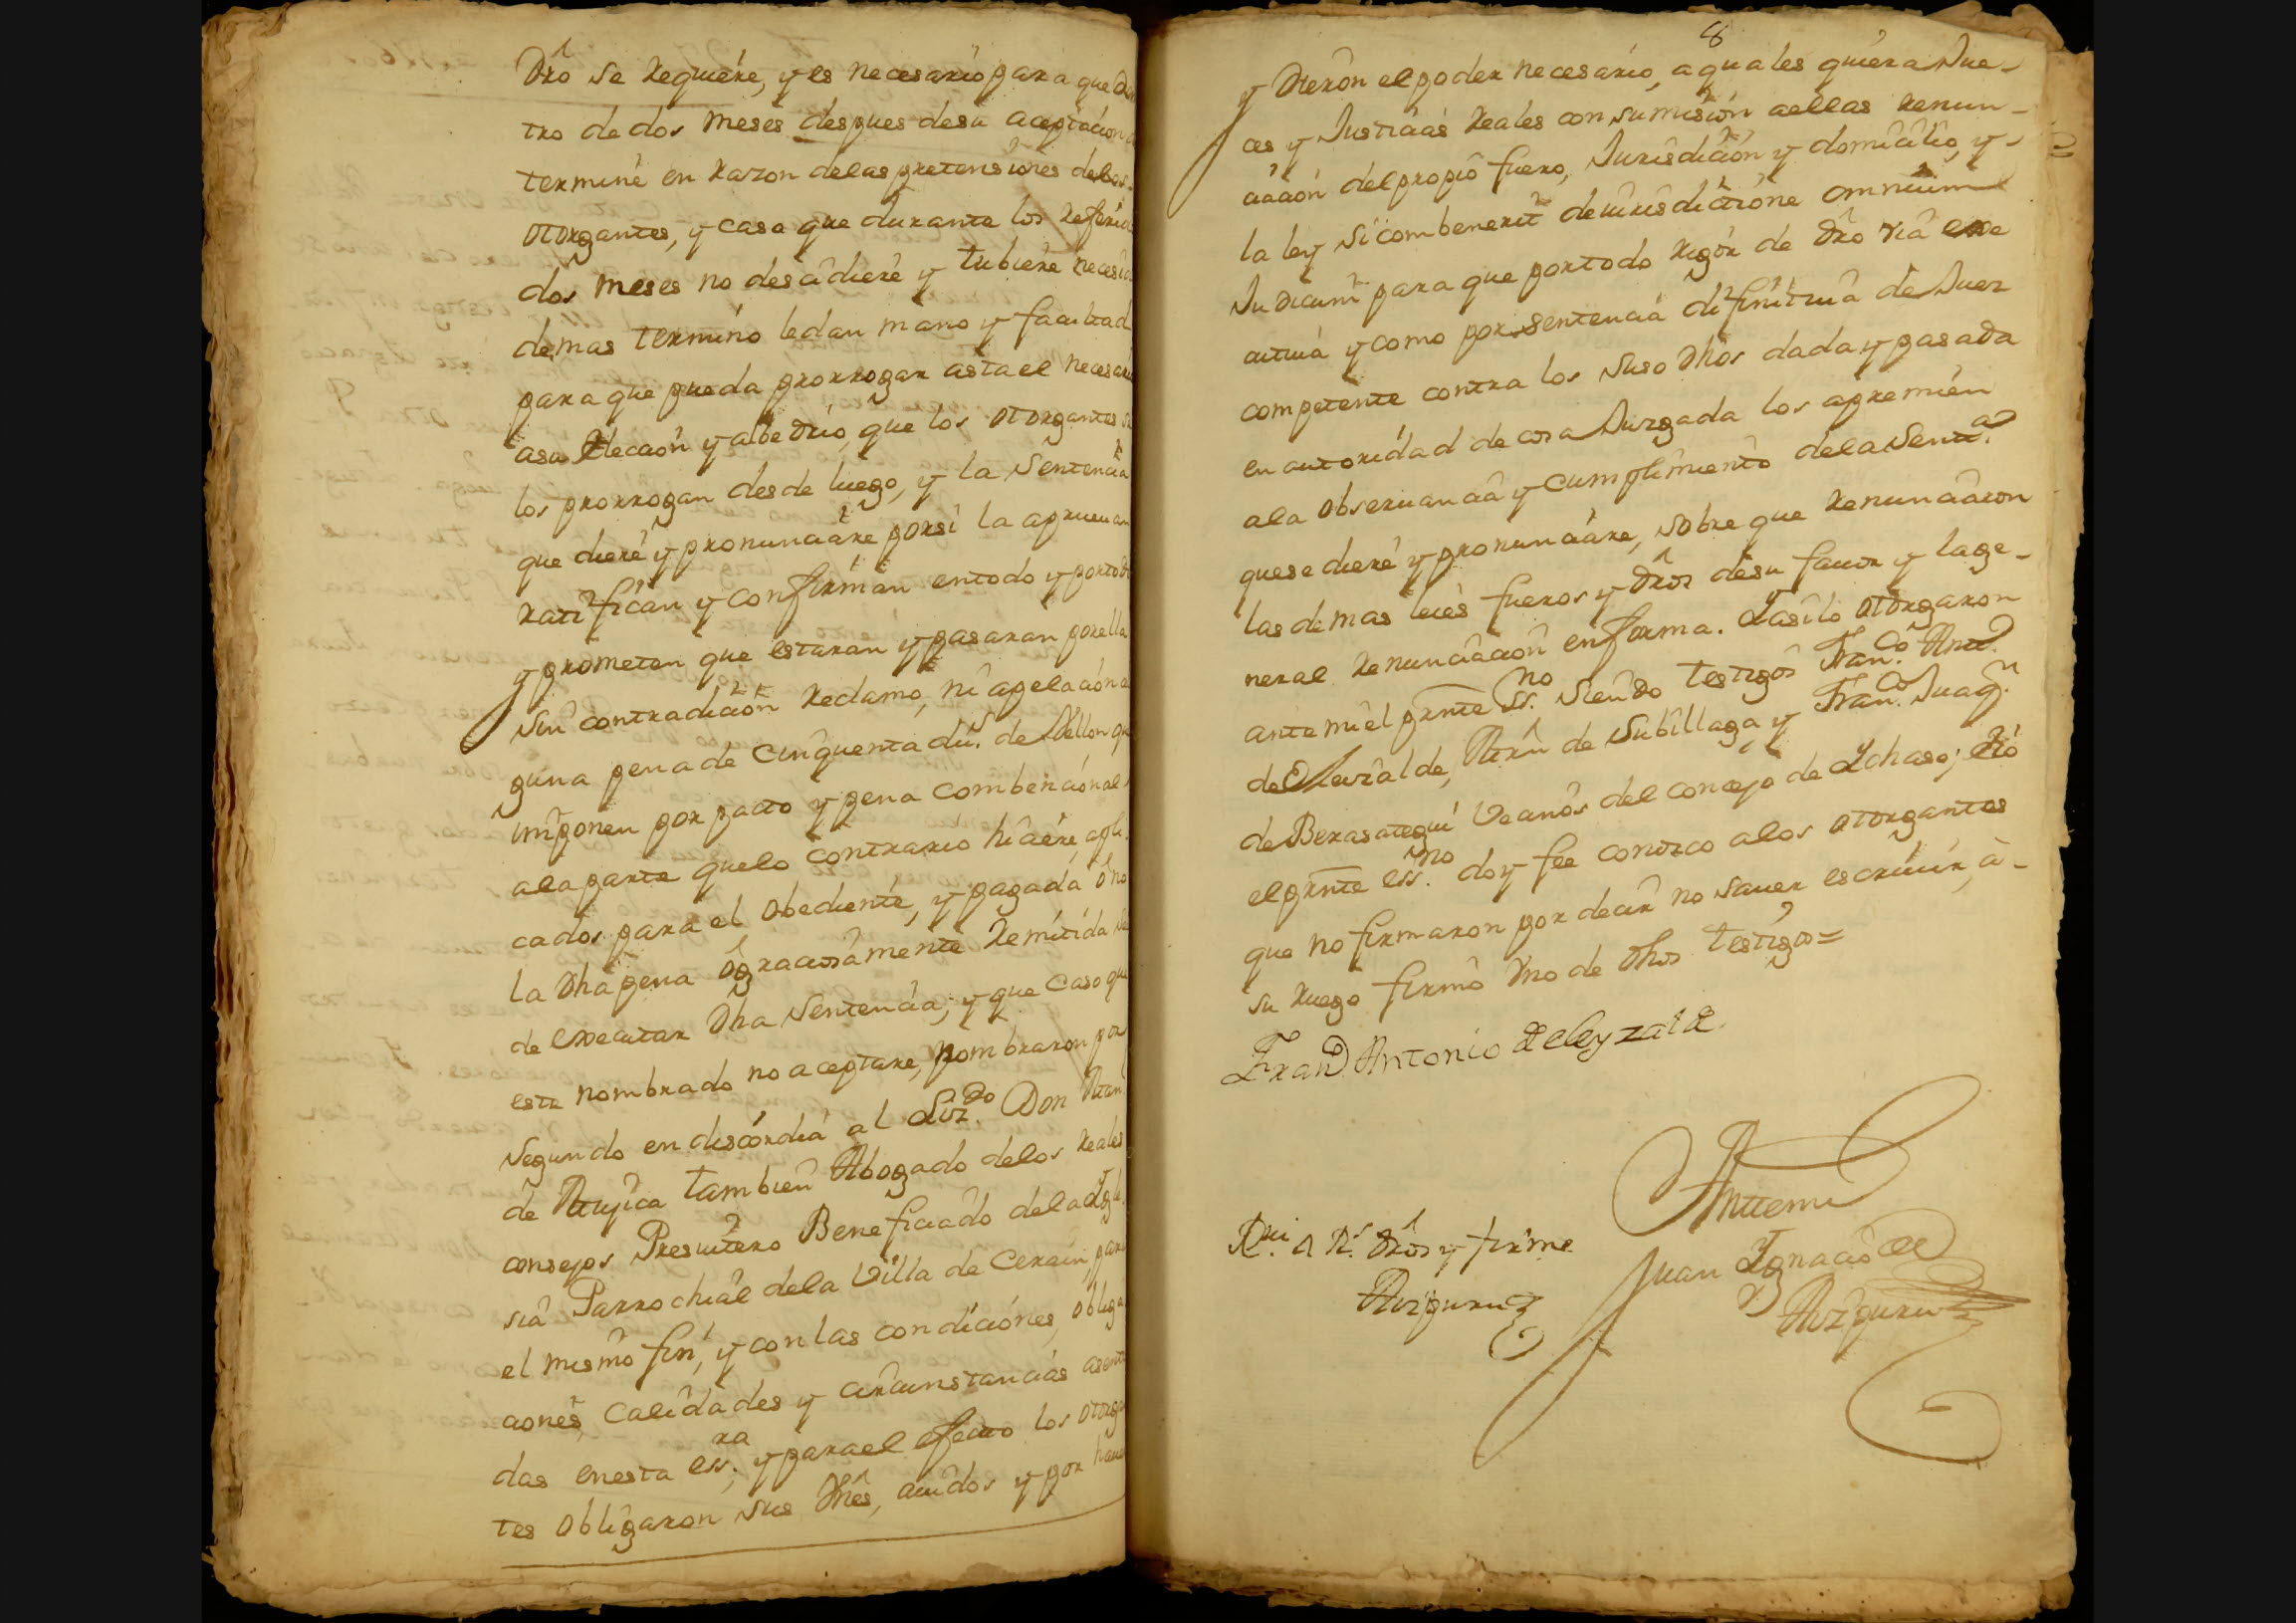 Dro se requiére, y es necesario para que den
tro de dos meses despues desu aceptacion
termine en razon delas pretensiones delos
otorgantes, y caso que durante los referid
dos meses no desidiere y tubiere necesi
demas termino ledan mano y facultad
para que pueda prorrogar asta el necesari
asu Eleccion y albedrio, que los otorgantes
los prorrogan desde luego, y la Sentencia
que diere y pronunciare porsi la aprueuan
ratifican y confirman entodo y portod
y prometen que estaran y pasaran porella
sin contradicion reclamo, ni apelacion
guna pena de Cinquenta du.s de Vellon qu
imponen por pacto y pena combencional
ala parte quelo contrario hiciere, apli
cados para el obediente, y pagada ó no
la Dha pena ó graciosamente remitida se
de executar Dha Sentencia; y que Caso que
este nombrado no aceptare, nombraron por
segundo en discordia al Liz.do Don
de Mujica tambien Abogado delos reales
consejos Presuitero Beneficiado dela Igle
sia Parrochial dela Villa de Cerain, para
el mismo fin, y con las condiciones, obliga
ciones, calidades y circunstancias asent
das enesta ess.ra, y para el efecto los otorga
tes obligaron sus Vnes, auidos y por hauer
8
y Dieron el poder necesario, a quales quiera Jue-
ces y Justicias reales con sumision aellas renun-
ciacion del propio fuero, Jurisdicion y domicilio, y
la ley si combenerit de iurisdictione omnium
Judicum para que por todo rigor de Dro via exe
cutiua y como por sentencia difinitiua de Juez
competente contra los suso Dhos dada y pasada
en autoridad de cosa Juzgada los apremien
ala obseruancia y cumplimiento dela Sent.a
quese diere y pronunciare, sobre que renunciaron
las demas leies fueros y Dros desu fauor y la ge-
neral renunciacion en forma. Y asilo otorgaron
ante mi el prnte ss.no siendo testigos Fran.co Ant.o
de Leizalde, Mrn de Subillaga y Fran.co Juaq.n
de Berasategui Vecinos del concejo de Ychaso; Y io
el prnte ess.no doy fee conozco alos otorgantes
que no firmaron por decir no sauer escriuir, à-
su ruego firmó vno de Dhos testigos=
Fran.co Antonio de leyzalde
Anttemi
Juan Ygnacio de
Aizpuru
R.ui A R.s Dros y firme
Aizpuru